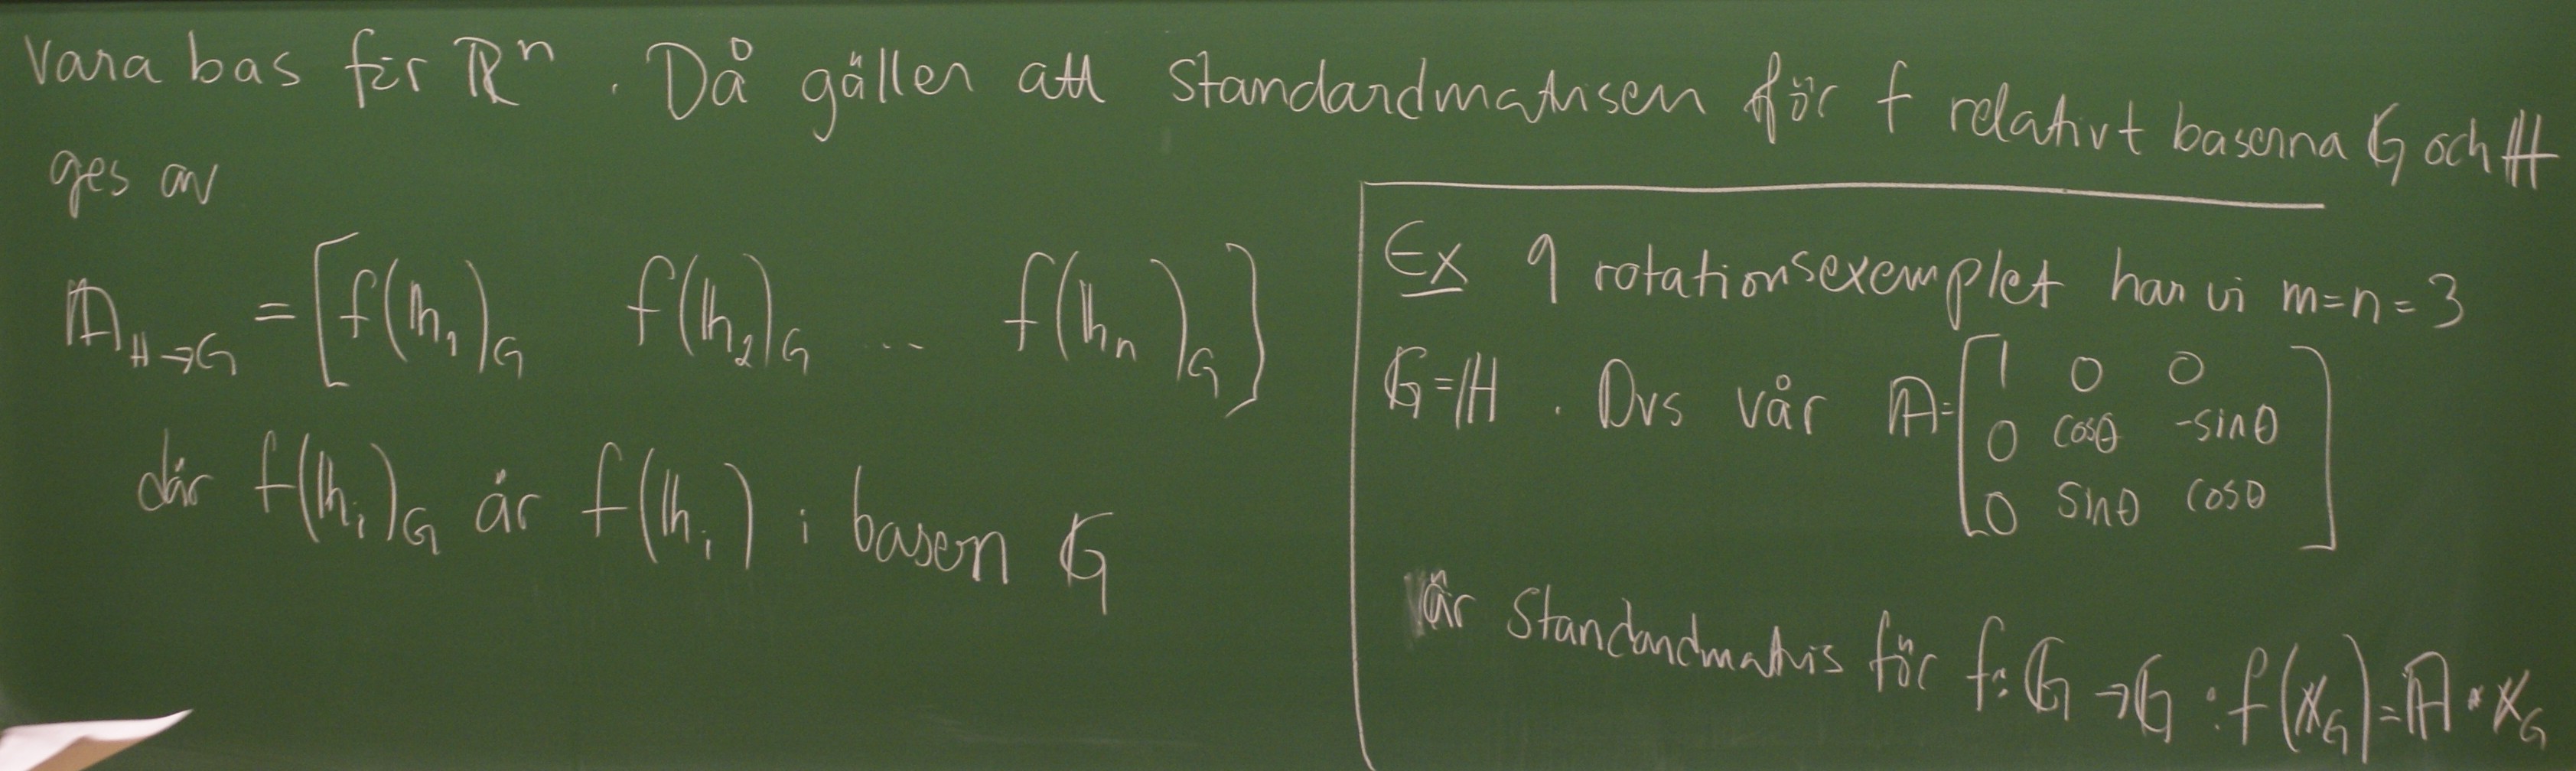 vara bas för ℝⁿ. Då gäller att standardmatrisen för f relativt baserna G och H
ges av
A_{H→G} = [f(h₁)_G f(h₂)_G ... f(hₙ)_G]
där f(hᵢ)_G är f(hᵢ) i basen G
Ex I rotationsexemplet har vi m=n=3
G=H. Dvs vår A=
1 0 0
0 cosθ -sinθ
0 sinθ cosθ
är standardmatris för f: G→G : f(x_G)=A·x_G